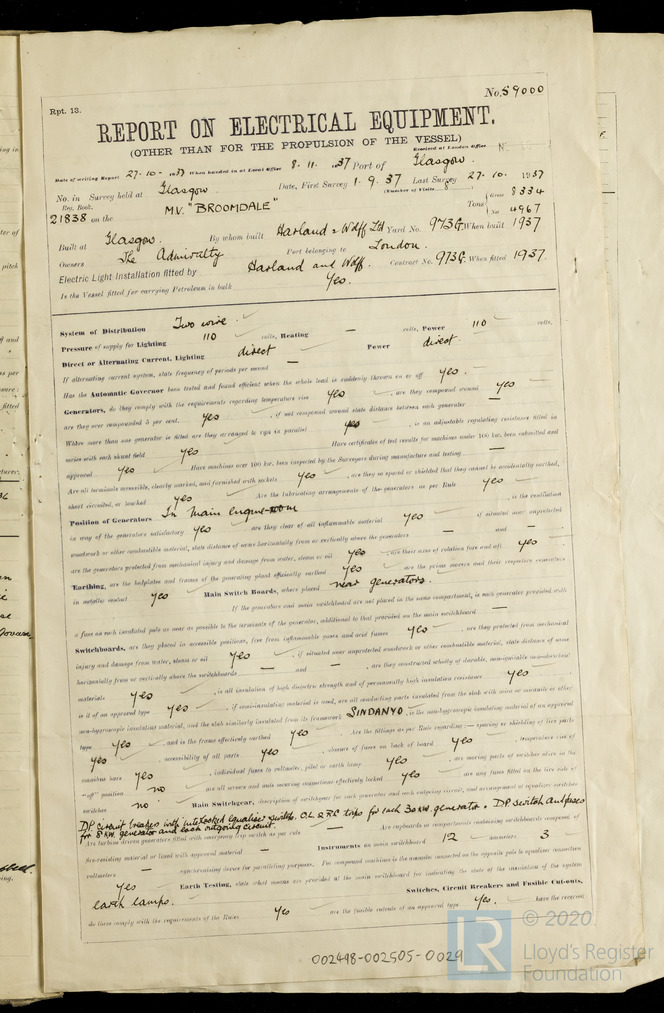 No. 59000
Rpt. 13.
REPORT ON ELECTRICAL EQUIPMENT.
(OTHER THAN FOR THE PROPULSION OF THE VESSEL)
Received at London Office
Date of writing Report 27-10-1937 When handed in at Local Office 8.11.1937 Port of Glasgow.
No. in Survey held at Glasgow Date, First Survey 1.9.37 Last Survey 27.10.1937
Reg. Book. (Number of Visits
21838 on the MV. "BROOMDALE" Tons Gross 8334 Net 4967
Built at Glasgow. By whom built Harland & Wolff Ltd Yard No. 973G. When built 1937
Owners The Admiralty Port belonging to London.
Electric Light Installation fitted by Harland and Wolff. Contract No. 973G. When fitted 1937.
Is the Vessel fitted for carrying Petroleum in bulk Yes.
System of Distribution Two wire.
Pressure of supply for Lighting 110 volts, Heating — volts, Power 110 volts.
Direct or Alternating Current, Lighting direct Power direct.
If alternating current system, state frequency of periods per second —
Has the Automatic Governor been tested and found efficient when the whole load is suddenly thrown on or off yes.
Generators, do they comply with the requirements regarding temperature rise yes, are they compound wound yes
are they over compounded 5 per cent. yes, if not compound wound state distance between each generator —
Where more than one generator is fitted are they arranged to run in parallel yes, is an adjustable regulating resistance fitted in
series with each shunt field yes Have certificates of test results for machines under 100 kw. been submitted and
approved yes Have machines over 100 kw. been inspected by the Surveyors during manufacture and testing —
Are all terminals accessible, clearly marked, and furnished with sockets yes, are they so spaced or shielded that they cannot be accidentally earthed,
short circuited, or touched yes Are the lubricating arrangements of the generators as per Rule yes
Position of Generators In main engine-room, is the ventilation
in way of the generators satisfactory yes are they clear of all inflammable material yes if situated near unprotected
woodwork or other combustible material, state distance of same horizontally from or vertically above the generators — and —
are the generators protected from mechanical injury and damage from water, steam or oil yes, are their axes of rotation fore and aft yes
Earthing, are the bedplates and frames of the generating plant efficiently earthed yes are the prime movers and their respective generators
in metallic contact yes Main Switch Boards, where placed near generators.
If the generators and main switchboard are not placed in the same compartment, is each generator provided with
a fuse on each insulated pole as near as possible to the terminals of the generator, additional to that provided on the main switchboard —
Switchboards, are they placed in accessible positions, free from inflammable gases and acid fumes yes, are they protected from mechanical
injury and damage from water, steam or oil yes, if situated near unprotected woodwork or other combustible material, state distance of same
horizontally from or vertically above the switchboards — and —, are they constructed wholly of durable, non-ignitable non-absorbent
materials yes, is all insulation of high dielectric strength and of permanently high insulation resistance yes
is it of an approved type yes, if semi-insulating material is used, are all conducting parts insulated from the slab with mica or micanite or other
non-hygroscopic insulating material, and the slab similarly insulated from its framework SINDANYO, is the non-hygroscopic insulating material of an approved
type yes, and is the frame effectively earthed yes Are the fittings as per Rule regarding:— spacing or shielding of live parts
yes, accessibility of all parts yes, absence of fuses on back of board yes, temperature rise of
omnibus bars yes, individual fuses to voltmeter, pilot or earth lamp yes, are moving parts of switches alive in the
"off" position no are all screws and nuts securing connections effectively locked yes are any fuses fitted on the live side of
switches no Main Switchgear, description of switchgear for each generator and each outgoing circuit, and arrangement of equaliser switches
D.P. circuit breakers with interlocked equaliser switches. O.L & R.C trips for each 30 KW. generator. D.P switch and fuses
for 8 KW. generator and each outgoing circuit. Are cupboards or compartments containing switchboards composed of
Are turbine driven generators fitted with emergency trip switch as per rule —
fire-resisting material or lined with approved material — Instruments on main switchboard 12 ammeters 3
voltmeters — synchronising device for paralleling purposes. For compound machines is the ammeter connected on the opposite pole to equaliser connection
yes Earth Testing, state what means are provided at the main switchboard for indicating the state of the insulation of the system
earth lamps. Switches, Circuit Breakers and Fusible Cut-outs,
do these comply with the requirements of the Rules yes are the fusible cutouts of an approved type yes. have the reverse
002498-002505-0029
LR
© 2020
Lloyd's Register
Foundation